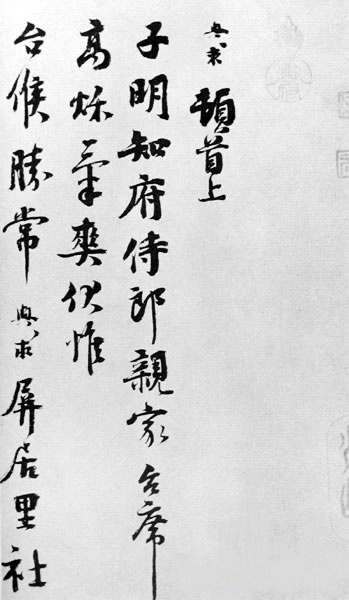 與求頓首上
子明知府侍郎親家台席
高秋氣爽伏惟
台候勝常與求屏居里社